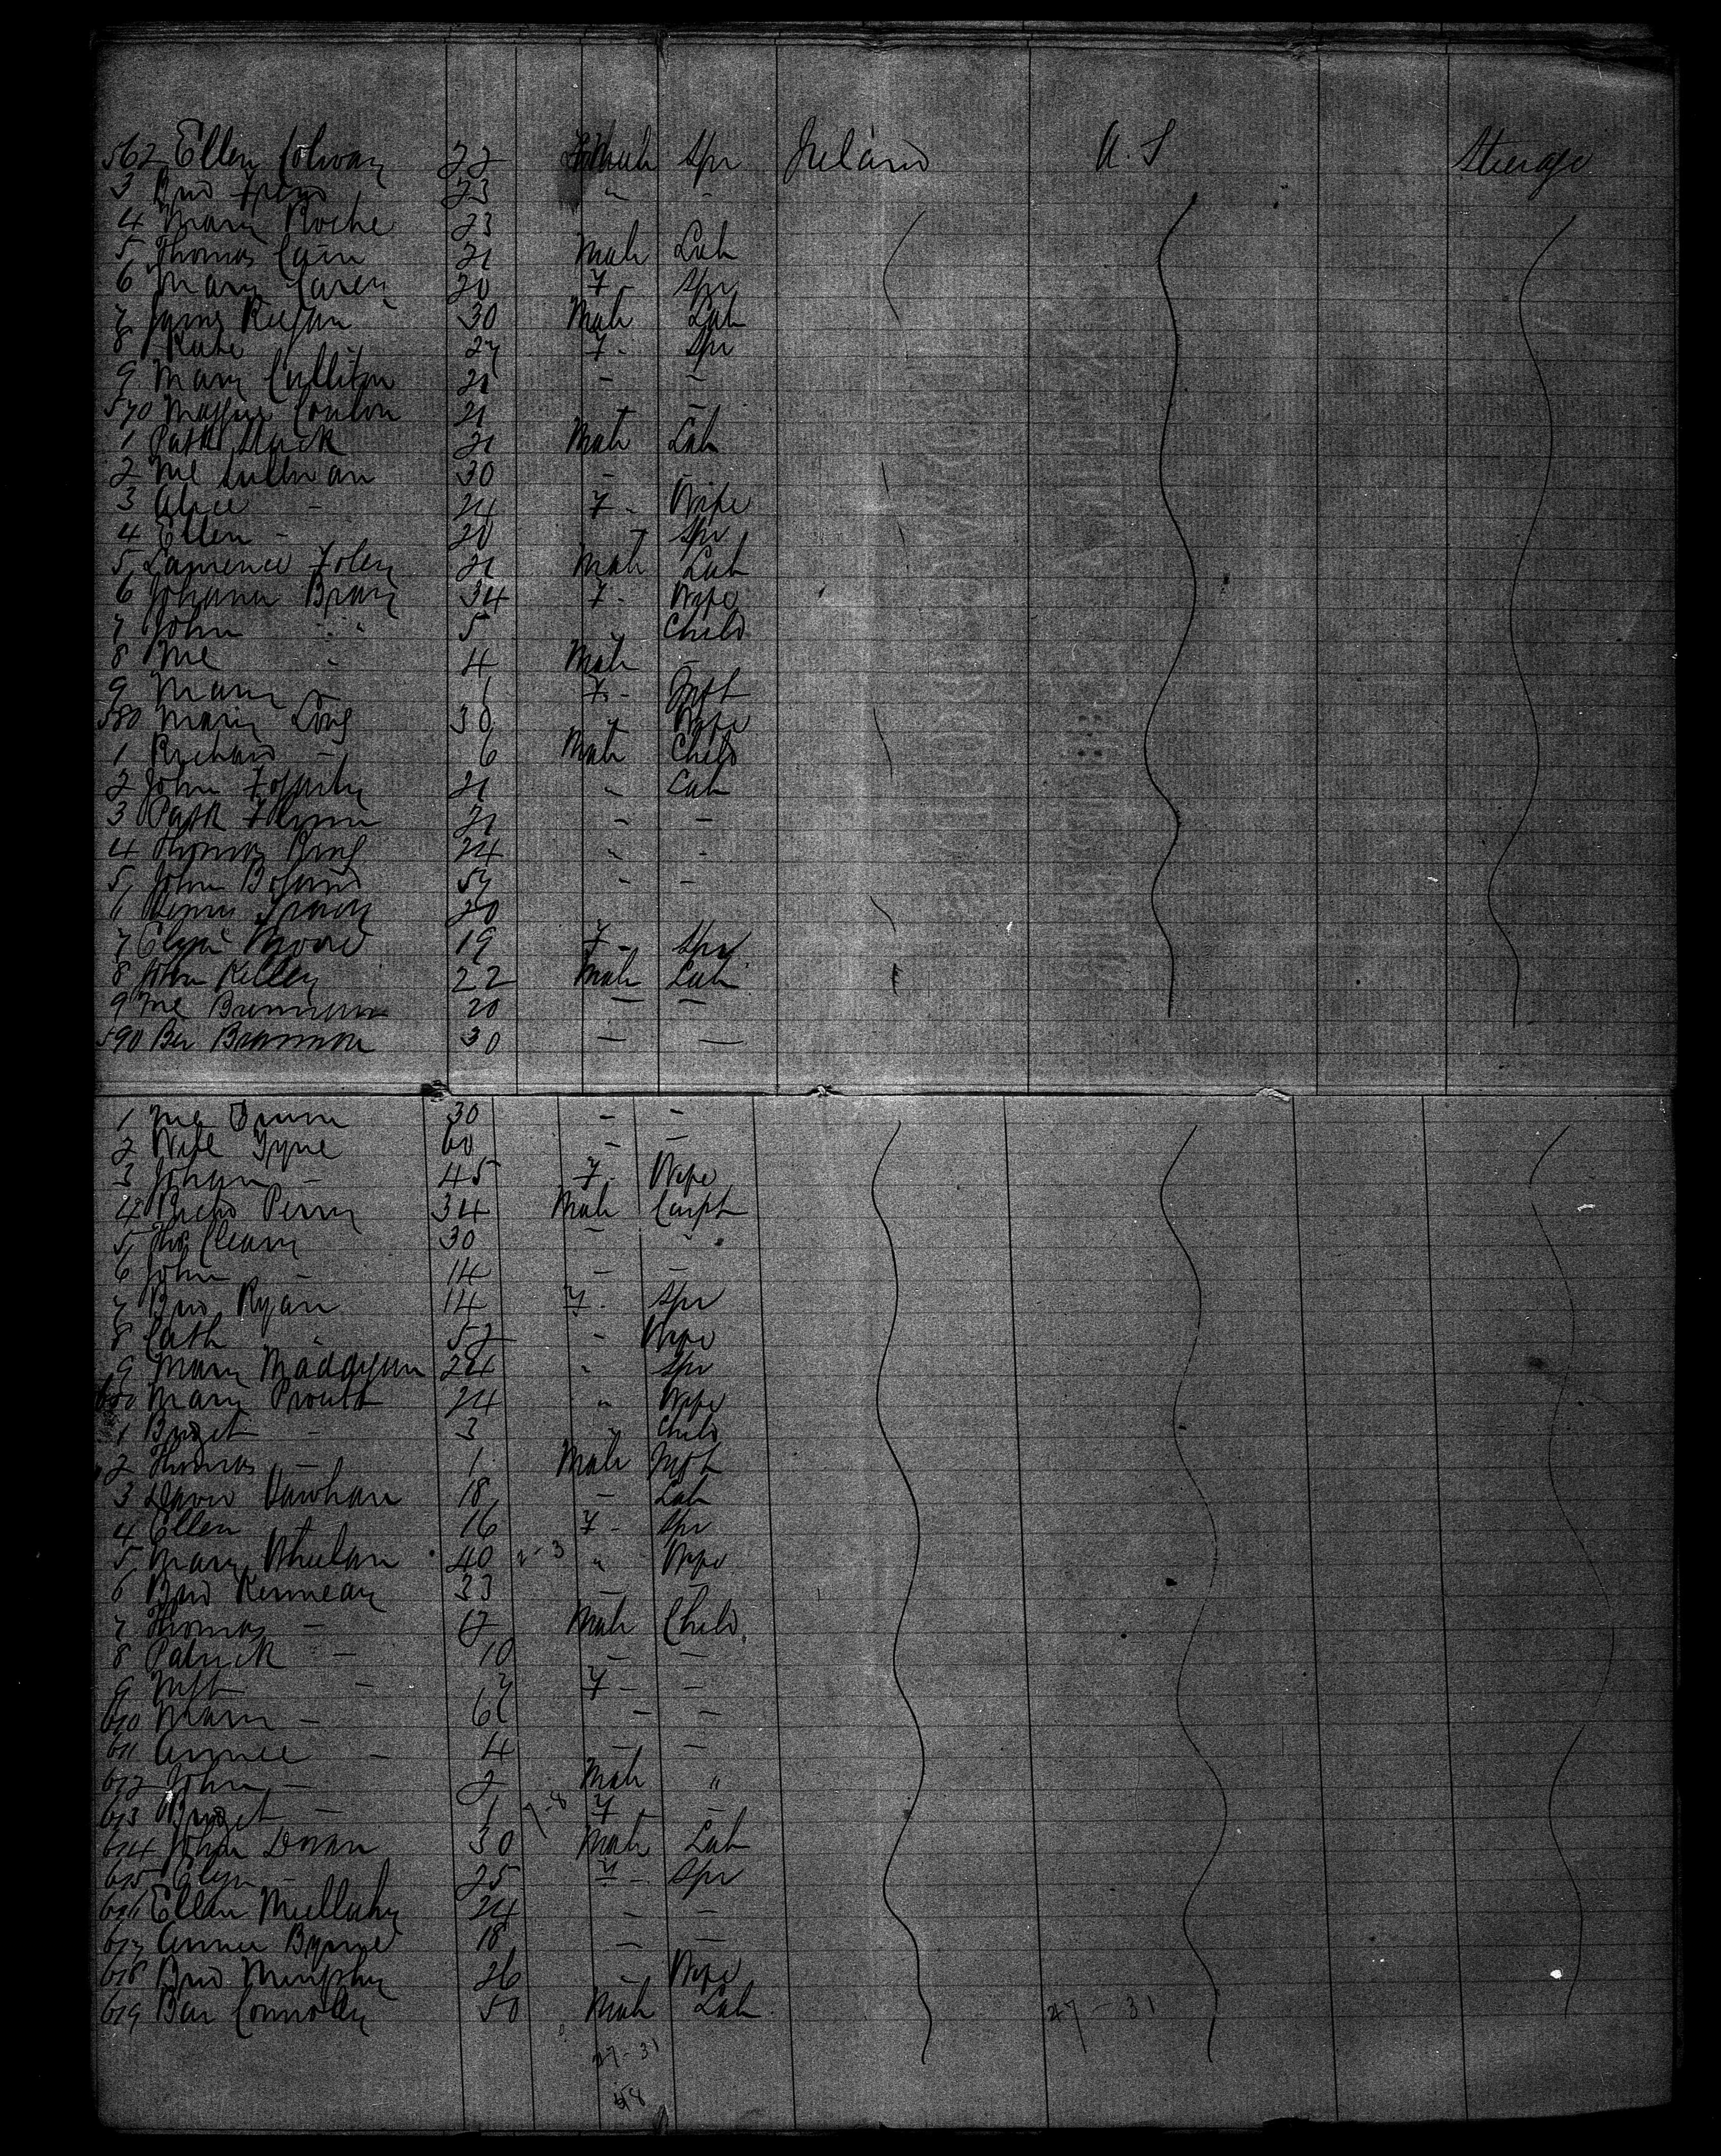 562 Ellen 22 Spr Ireland U.S Steerage
3 Brid 23 " -
4 Mary Roche 23
5 Thomas Cain 21 Male Lab
6 Mary Carey 20 F - Spr
7 James Regan 30 Male Lab
8 Kate 24 F - Spr
9 Mary Culliton 21 - -
570 Maggie Conlon 21 - -
1 Patk 21 Male Lab
2 Me Sullivan 30 - -
3 Alice - 24 F - Wife
4 Ellen - 20 - Spr
5 Lawrence Foley 21 Male Lab
6 Johana 34 F - Wife
7 John " 5 " Child
8 Me " 4 Male -
9 Mary - 1 F - Inft
580 Mary Long 30 " Wife
1 Richard - 6 Male Child
2 John Fogarty 21 " Lab
3 Patk Flynn 21 - -
4 Thomas 24 " -
5 John Boland 57 - -
6 20
7 Eliza Moore 19 F - Spr
8 John Kelley 22 Male Lab
9 Me Brennan 20 - -
590 Brannon 30 - -
1 Me 30 - -
2 60 - -
3 Johan - 45 F - Wife
4 Richd Perry 34 Male Carpt
5 Thos Cleary 30 - "
6 John - 14 - -
7 Brid Ryan 14 F - Spr
8 Cath 52 - Wife
9 Mary Madagan 24 " Spr
600 Mary Prout 24 " Wife
1 Bridget - 3 " Child
2 Thomas - 1 Male Inft
3 David 18 - Lab
4 Ellen - 16 F - Spr
5 Mary Whelan 40 2-3 " Wife
6 Brid Kennedy 33 - -
7 Thomas - 12 Male Child
8 Patrick - 10 - -
9 Inft - 7 F - -
610 Mary - 6 - -
611 Annie - 4 - -
612 John - 2 Male "
613 Bridget - 1 7-8 F -
614 John Doran 30 Male Lab
615 Eliza - 25 F - Spr
616 Ellen Mullahy 24 - -
617 Annie Byrne 18 - -
618 Brid Murphy 26 - Wife
619 Connolly 50 Male Lab 27-31
27-31